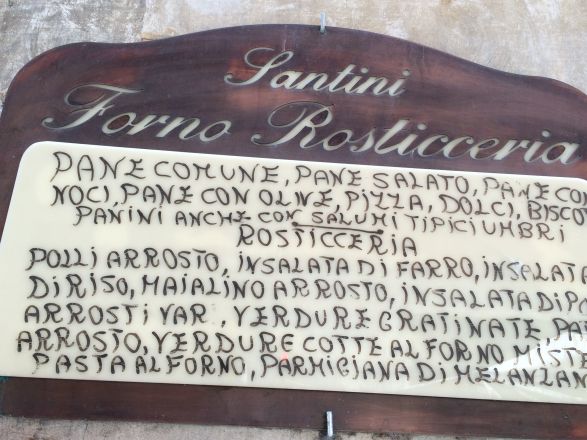 Santini
Forno Rosticceria
PANE COMUNE, PANE SALATO, PANE CON
NOCI, PANE CON OLIVE, PIZZA, DOLCI, BISCO
PANINI ANCHE CON SALUMI TIPICI UMBRI
ROSTICCERIA
POLLI ARROSTO, INSALATA DI FARRO, INSALATA
DI RISO, MAIALINO ARROSTO, INSALATA DI PO
ARROSTI VARI, VERDURE GRATINATE, PA
ARROSTO, VERDURE COTTE AL FORNO MISTE
PASTA AL FORNO, PARMIGIANA DI MELANZAN